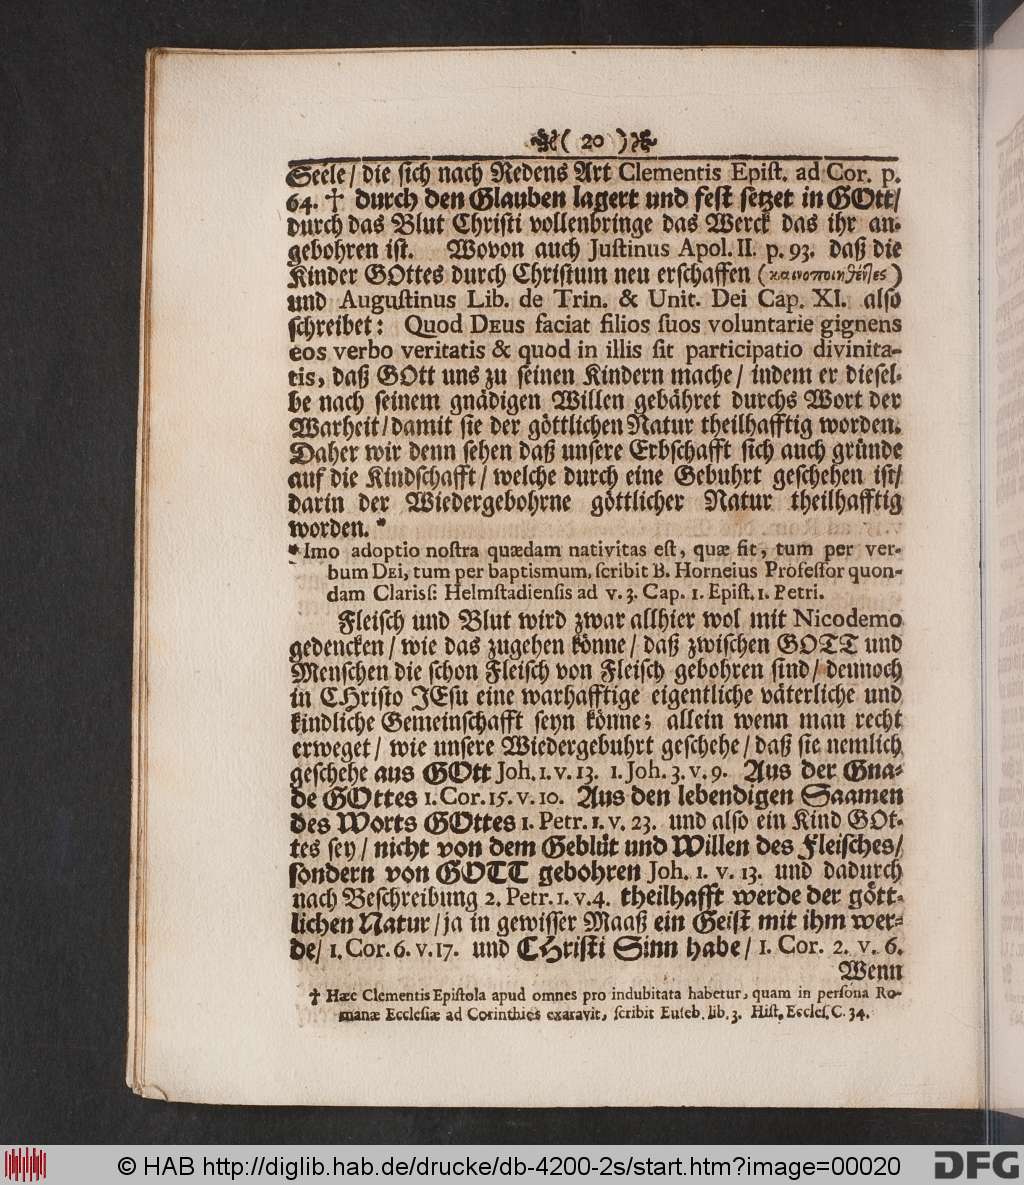 ( 20 )
Seele / die sich nach Redens Art Clementis Epiſt. ad Cor. p.
64. † durch den Glauben lagert und fest setzet in GOtt/
durch das Blut Christi vollenbringe das Werck das ihr an-
gebohren ist. Wovon auch Juſtinus Apol. II. p. 93. daß die
Kinder GOttes durch Christum neu erschaffen ( )
und Auguſtinus Lib. de Trin. & Unit. Dei Cap. XI. also
schreibet: Quod DEus faciat filios ſuos voluntarie gignens
eos verbo veritatis & quod in illis ſit participatio divinita-
tis, daß GOtt uns zu seinen Kindern mache / indem er diesel-
be nach seinem gnädigen Willen gebähret durchs Wort der
Warheit / damit sie der göttlichen Natur theilhafftig worden.
Daher wir denn sehen daß unsere Erbschafft sich auch gründe
auf die Kindschafft / welche durch eine Gebuhrt geschehen ist/
darin der Wiedergebohrne göttlicher Natur theilhafftig
worden. *
* Imo adoptio noſtra quædam nativitas eſt, quæ fit, tum per ver-
bum DEi, tum per baptismum, ſcribit B. Horneius Profeſſor quon-
dam Clariſſ: Helmſtadienſis ad v. 3. Cap. 1. Epiſt. 1. Petri.
Fleisch und Blut wird zwar allhier wol mit Nicodemo
gedencken / wie das zugehen könne / daß zwischen GOTT und
Menschen die schon Fleisch von Fleisch gebohren sind / dennoch
in CHristo JEsu eine warhafftige eigentliche väterliche und
kindliche Gemeinschafft seyn könne; allein wenn man recht
erweget / wie unsere Wiedergebuhrt geschehe / daß sie nemlich
geschehe aus GOtt Joh. 1. v. 13. 1. Joh. 3. v. 9. Aus der Gna-
de GOttes 1. Cor. 15. v. 10. Aus den lebendigen Saamen
des Worts GOttes 1. Petr. 1. v. 23. und also ein Kind GOt-
tes sey / nicht von dem Geblüt und Willen des Fleisches/
sondern von GOTT gebohren Joh. 1. v. 13. und dadurch
nach Beschreibung 2. Petr. 1. v. 4. theilhafft werde der gött-
lichen Natur / ja in gewisser Maaß ein Geist mit ihm wer-
de/ 1. Cor. 6. v. 17. und CHristi Sinn habe / 1. Cor. 2. v. 6.
Wenn
† Hæc Clementis Epiſtola apud omnes pro indubitata habetur, quam in perſona Ro-
manæ Eccleſiæ ad Corinthies exaravit, ſcribit Euſeb. lib. 3. Hiſt. Eccleſ. C. 34.
© HAB http://diglib.hab.de/drucke/db-4200-2s/start.htm?image=00020
DFG